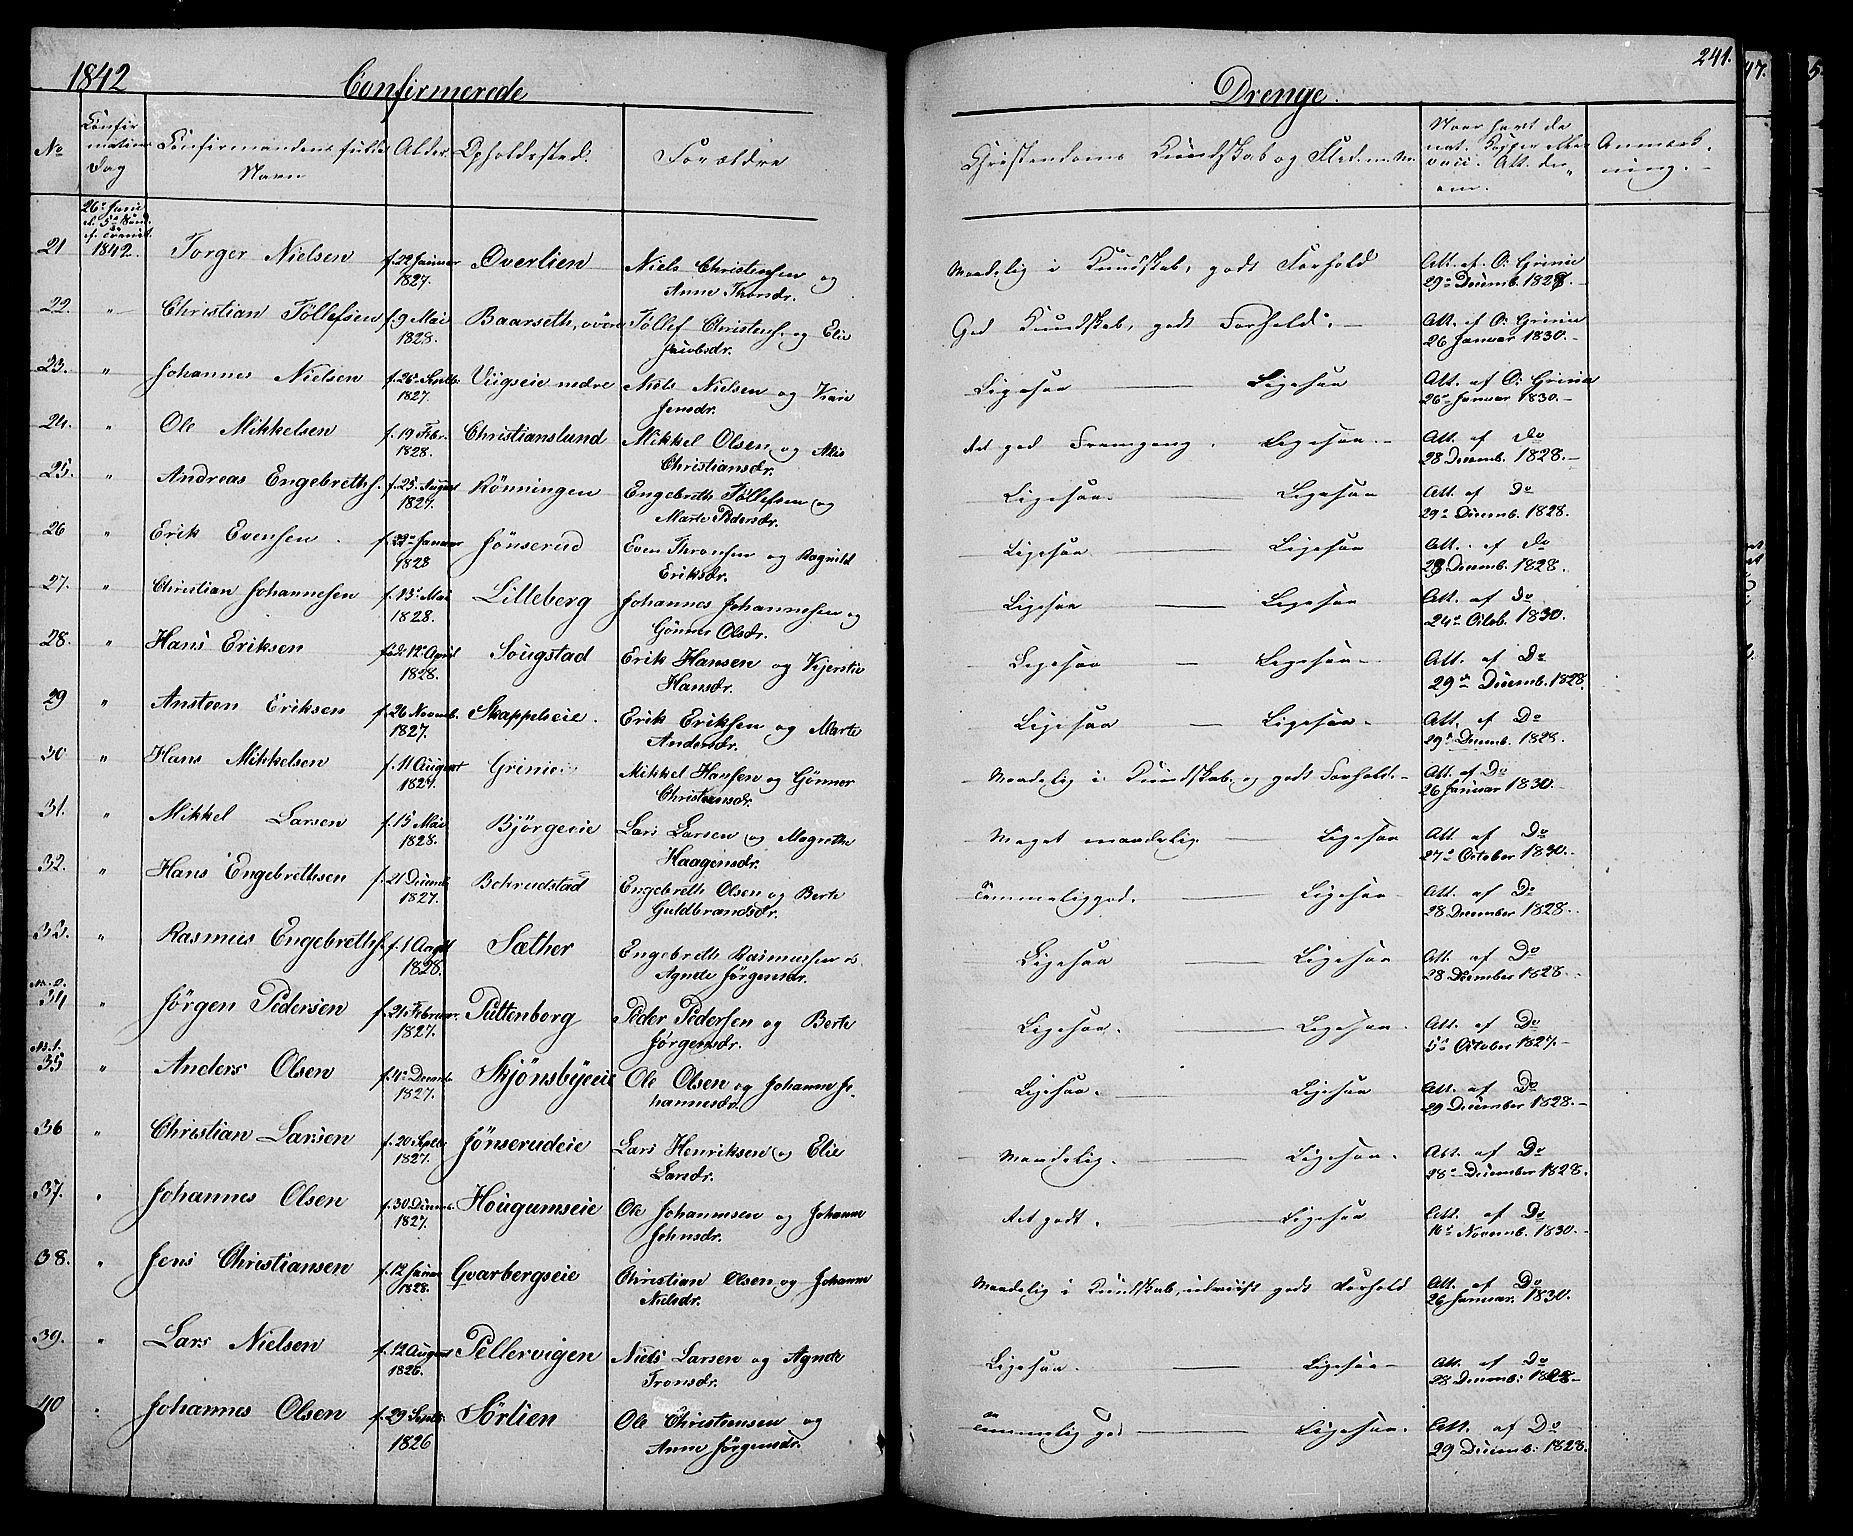 1842 Confirmerede Drenge. 241.
No Confirmations Dag Confirmandens fulde Navn Alder Opholdssted. Forældre Christendoms Kundskab og Anmærkning.
26de Juni
1842.
21 Torger Nielsen f. 22 Januar 1827. Øverlien Niels Christensen og Anne Thorsdr. Maadelig i Kundskab, godt Forhold Att. af O: Grinie 29de Decemb. 1828.
22. " Christian Tollefsen f. 9 Mai 1828. Baarseth, øvre Tollef Christens. og Elie Jacobsdr. God Kundskab, godt Forhold. Att. af O: Grinie 26 Januar 1830.
23. " Johannes Nielsen f. 26de Septb. 1827. Viigseie nedre Niels Nielsen og Kari Jensdr. Ligesaa Ligesaa Att. af O: Grinie 26de Januar 1830.
24. " Ole Mikkelsen f. 19 Febr. 1828. Christianslund Mikkel Olsen og Alis Christiansdr. Ret god Fremgang. Ligesaa Att. af do 28 Decemb. 1828.
25. " Andreas Engebreths. f. 25. August 1827. Rönningen Engebreth Tollefsen og Marte Pedersdr. Ligesaa Ligesaa Att. af Do 29de Decemb. 1828.
26 " Erik Evensen f. 22de Januar 1828 Jönserud Even Thronsen og Ragnild Eriksdr. Ligesaa Ligesaa Att. af do 28 Decemb. 1828.
27. " Christian Johannesen f. 15de Mai 1828. Lilleberg Johannes Johannesen og Gönner Olsdr. Ligesaa Ligesaa Att. af do 24de Octob. 1830.
28. " Hans Eriksen 12te April 1828. Sougstad Erik Hansen og Kjerstie Hansdr. Ligesaa Ligesaa Att. af Do 29de Decemb. 1828.
29 " Ansteen Eriksen f. 26 Novemb. 1827. Skappelseie. Erik Eriksen og Marte Andersdr. Ligesaa Ligesaa Att. af Do 29de Decemb. 1828.
30 " Hans Mikkelsen f. 11 August 1827. Grinie Mikkel Hansen og Gönner Christensdr. Maadelig i Kundskab og godt Forhold. Att. af Do 26 Januar 1830.
31. " Mikkel Larsen f. 15 Mai 1828. Bjørgeeie Lars Larsen og Magrethe Haagensdr. Meget maadelig Ligesaa Att. af Do 27de October 1830.
32. " Hans Engebrethsen f. 21 Decemb. 1827. Behrudstad Engebreth Olsen og Berte Guldbrandsdr. Temmelig god. Ligesaa Att. af Do 28 December 1828.
33. " Rasmus Engebreths. f. 1 Augst 1828. Sæther Engebreth Rasmussen & Agnete Jörgensdr. Ligesaa Ligesaa Att. af Do 28 December 1828.
34 " Jörgen Pedersen f. 21 Februar. 1827. Puttenborg Peder Pedersen og Berte Jörgensdr. Ligesaa. Ligesaa. Att. af Do 5te October 1827.
35 " Anders Olsen f. 4de Decemb. 1827. Skjönsbyeeie Ole Olsen og Johanne Johannesdr. Ligesaa. Ligesaa Att. af Do 29 December 1828.
36 " Christian Larsen f. 20 Septb. 1827. Jönserudeie Lars Henriksen og Elie Larsdr. Maadelig. Ligesaa. Att. af Do 28de December 1828.
37. " Johannes Olsen f. 30 Decemb. 1827. Hougumseie Ole Johannesen og Johanne Johnsdr. Ret godt. Ligesaa Att. af Do 16de Novemb. 1830.
38. " Jens Christiansen f. 12 Januar 1828. Gvarbergseie Christian Olsen og Johanne Nielsdr. Maadelig i Kundskab, udviist godt Forhold Att. af Do 26 Januar. 1830.
39. " Lars Nielsen f. 12 August 1826. Pellervigen Niels Larsen og Agnete Tronsdr. Ligesaa. Ligesaa Att. af Do 28 Decemb: 1828
40 " Johannes Olsen f. 29 Septb. 1826 Sörlien Ole Christiansen og Anne Jörgensdr. Temmelig god Ligesaa. Att. af Do 29 Decemb: 1828.